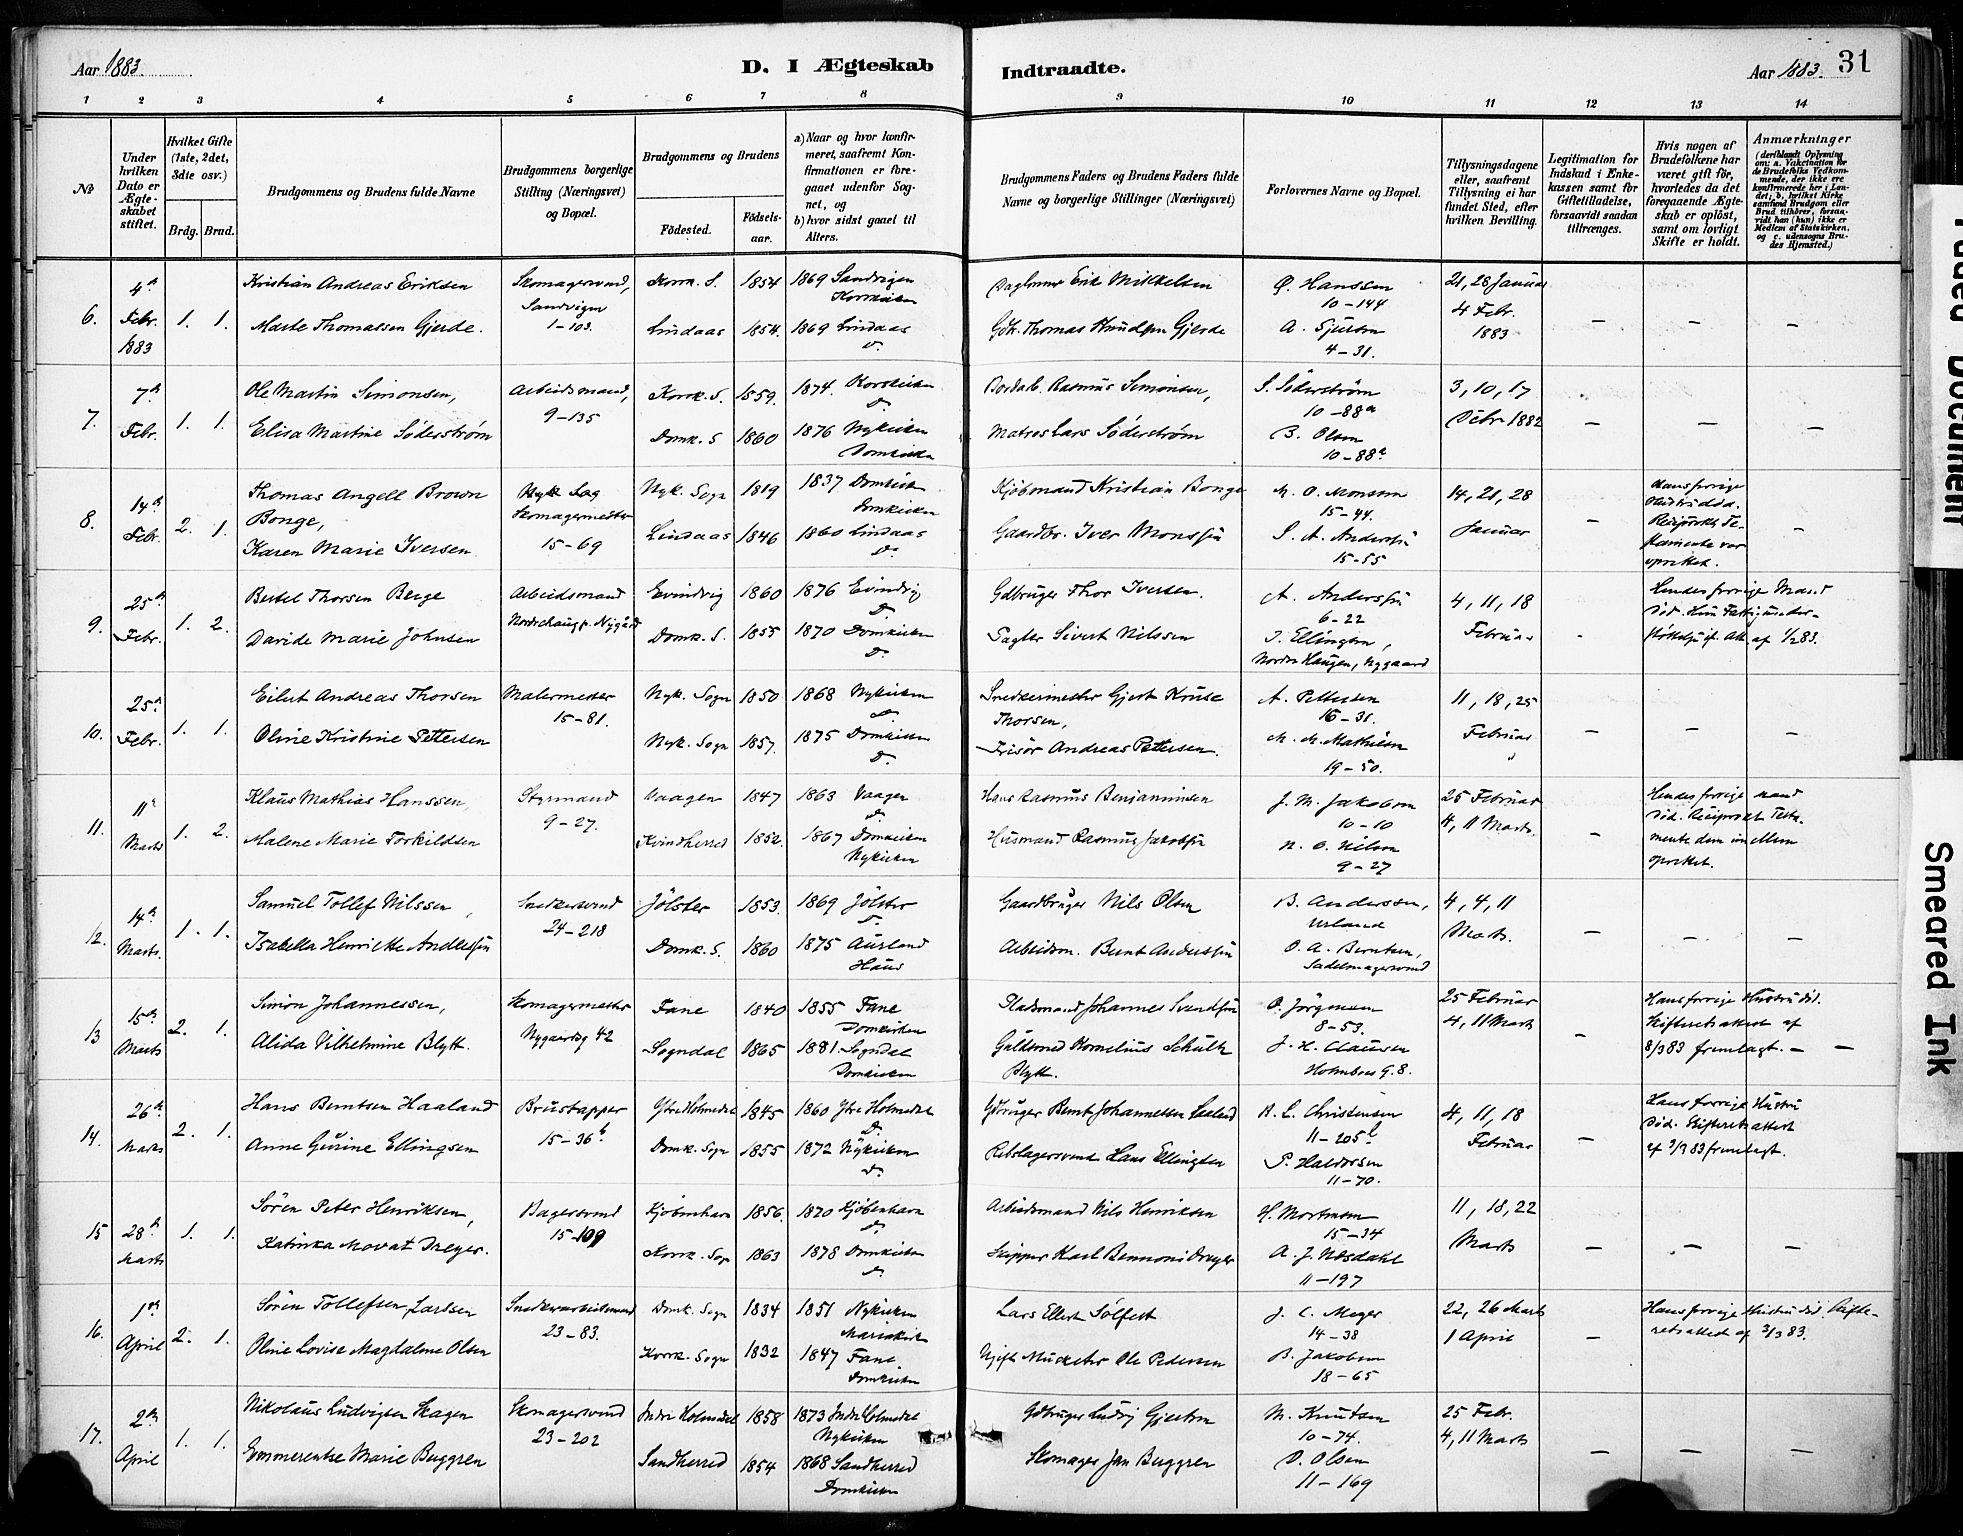 Aar 1883. D. I Ægteskab
Indtraadte. Aar 1883. 31
1 2 3 4 5 6 7 8 9 10 11 12 13 14
No
Under hvilken Dato er Ægteskabet stiftet.
Hvilket Gifte (1ste, 2det, 3die osv.)
Brdg. Brud.
Brudgommens og Brudens fulde Navne
Brudgommens borgerlige Stilling (Næringsvei) og Bopæl.
Brudgommens og Brudens
Födested. Födselsaar.
a) Naar og hvor konfirmeret, saafremt Konfirmationen er foregaaet udenfor Sognet, og
b) hvor sidst gaaet til Alters.
Brudgommens Faders og Brudens Faders fulde Navne og borgerlige Stillinger (Næringsvei)
Forlovernes Navne og Bopæl.
Tillysningsdagene eller, saafremt Tillysning ei har fundet Sted, efter hvilken Bevilling.
Legitimation for Indskud i Enkekassen samt for Giftetilladelse, forsaavidt saadan tiltrænges.
Hvis nogen af Brudefolkene har været gift för, hvorledes da det foregaaende Ægteskab er oplöst, samt om lovligt Skifte er holdt.
Anmærkninger
(deriblandt Oplysning om: a. Vakcination for de Brudefolks Vedkommende, der ikke ere konfirmerede her i Landet; b. hvilket Kirkesamfund Brudgom eller Brud tilhörer, forsaavidt han (hun) ikke er Medlem af Statskirken, og c. udensogns Brudes Hjemsted.)
6. 4de Febr. 1883 1. 1.
Kristian Andreas Eriksen
Marte Thomassen Gjerde.
Skomagersvend, Sandvigen 1-103.
Korsk. S. 1854 1869 Sandvigen Korskirken
Lindaas 1854. 1869 Lindaas do.
Daglönner Erik Mikkelsen
Gdb. Thomas Knudsen Gjerde
O. Hanssen 10-144
A. Sjursen 4-31.
21, 28 Januar 4 Febr. 1883
— — —
7. 7de Febr. 1. 1.
Ole Martin Simonsen,
Elisa Martine Söderström
Arbeidsmand, 9-135
Korsk. S. 1859. 1874. Korskirken do.
Domk. S 1860 1876 Nykirken Domkirken
Bordarb. Rasmus Simonsen,
Matros Lars Söderström
S. Söderström 10-88a
B. Olsen 10-88a
3, 10, 17 Debr 1882
— — —
8. 14de Febr. 2. 1.
Thomas Angell Brown Bonge,
Karen Marie Iversen
Skomagermester 15-69
Nyk. Sogn 1819 1837 Domkirken Domkirken
Lindaas 1846 1860 Lindaas do.
Kjöbmand Kristian Bonge
Gaardbr. Iver Monssen
M. O. Monsen 15-44.
S. A. Anderssen 15-55
14, 21, 28 Januar
—
Hans forrige Hustru död. Reciprokt Testamente var oprettet. —
9. 25de Febr. 1. 2.
Bertel Thorsen Berge
Davide Marie Johnsen
Arbeidsmand
Evindvig 1860 1876 Evindvig do.
Domk. S. 1855 1870 Domkirken do.
Gdbruger Thor Iversen.
Fagter Sivert Nilssen
A. Anderssen 6-22
J. Ellingsen, Nordre Haugen, Nygaard
4, 11, 18 Februar
-
Hendes forrige Mand död. af 1/2 83.
10. 25de Febr. 1. 1.
Eilert Andreas Thorsen
Oline Kristine Pettersen
Malermester 15-81.
Nyk. Sogn 1850 1868 Nykirken do.
Nyk. Sogn 1857. 1875 Domkirken do.
Snedkermester Gjert Kruse Thorsen,
Frisör Andreas Pettersen.
A. Pettersen 16-31.
M. M. Mathisen 19-50.
11, 18, 25 Februar
— — —
11. 11te Marts 1. 2.
Klaus Mathias Hanssen,
Malene Marie Torkildsen
Styrmand 9-27.
Vaagen 1847 1863 Vaagen do.
Kvindherred 1852. 1867 Domkirken Nykirken
Hans Rasmus Benjaminsen
Husmand Rasmus Jakobsen
J. M. Jakobsen 10-10
N. O. Nilsen 9-27
25 Februar 4, 11 Marts.
—
Hendes forrige Mand död. Reciprokt Testamente dem imellem oprettet.
12. 14de Marts. 1. 1.
Samuel Tollef Nilssen,
Isabella Henriette Andersen
Snedkersvend 24-218
Jölster 1853. 1869 Jölster do.
Domk. S. 1860 1875 Aurland Haus
Gaardbruger Nils Olsen
Arbeidsm. Bernt Anderssen
B. Anderssen, Urland
O. A. Berntsen, Sadelmagersvend
4, 4, 11 Marts.
— — —
13 15de Marts 2. 1.
Simon Johannessen,
Alida Vilhelmine Blytt.
Skomagermester Nygaardsg 42
Fane 1840 1855 Fane Domkirken
Sogndal 1865 1881. Sogndal Domkirken
Pladsmand Johannes Svendsen
Guldsmed Kornelius Schultz Blytt.
O. Jörgensen 8-53.
J. H. Clausen Holmboes G. 8.
25 Februar 4, 11 Marts
-
Hans forrige Hustru död. Skifteretsattest af 8/3 83 fremlagt. — —
14. 26de Marts 2. 1.
Hans Berntsen Haaland
Anne Gurine Ellingsen
Brustapper 15-36b.
Ytre Holmedal 1845 1860 Ytre Holmedal do.
Domk. Sogn 1855 1872 Nykirken do.
Gdbruger Bernt Johannessen
Rebslagersvend Hans Ellingsen
R. L. Christensen 11-205b
P. Haldorsen 11-70.
4, 11, 18 Februar
—
Hans forrige Hustru död. Skifteretsattest af 2/3 83 fremlagt.
15 28de Marts 1. 1.
Sören Peter Henriksen,
Katinka Mowat Dreyer.
Bagersvend 15-109
Kjöbenhavn 1856. 1870 Kjöbenhavn do.
Korsk. Sogn 1863 1878 Domkirken do.
Arbeidsmand Nils Henriksen
Skipper Karl Bennoni Dreyer
H. Mortensen 15-34
A. J. Næsdahl 11-197
11, 18, 22 Marts
— — —
16. 1ste April 2. 1.
Sören Tollefsen Larssen
Oline Lovise Magdalene Olsen
Snedkerarbeidsmand 23-83.
Domk. Sogn 1834 1851 Nykirken Mariakirken
Korsk. Sogn 1832 1847 Fane. Domkirken
Lars Ellert Sölfest
Ugift Musketer Ole Pedersen
J. C. Meyer 14-38
B. Jakobsen 18-65
22, 26 Marts 1 April
—
Hans forrige Hustru död. Skifteretsattest af 3/3 83.
17. 2den April 1. 1.
Nikolaus Ludvigsen Skagen
Emmerentse Marie Buggren
Skomagersvend 23-202
Indre Holmedal 1858 1873 Indre Holmedal Nykirken
Sandherred 1854 1868 Sandherred Domkirken
Gdbruger Ludvig Gjertsen
Skomager Jan Buggren
M. Knutsen 10-74.
O. Olsen 11-169
25 Febr. 4, 11 Marts
— — —
Faded Document
Smeared Ink